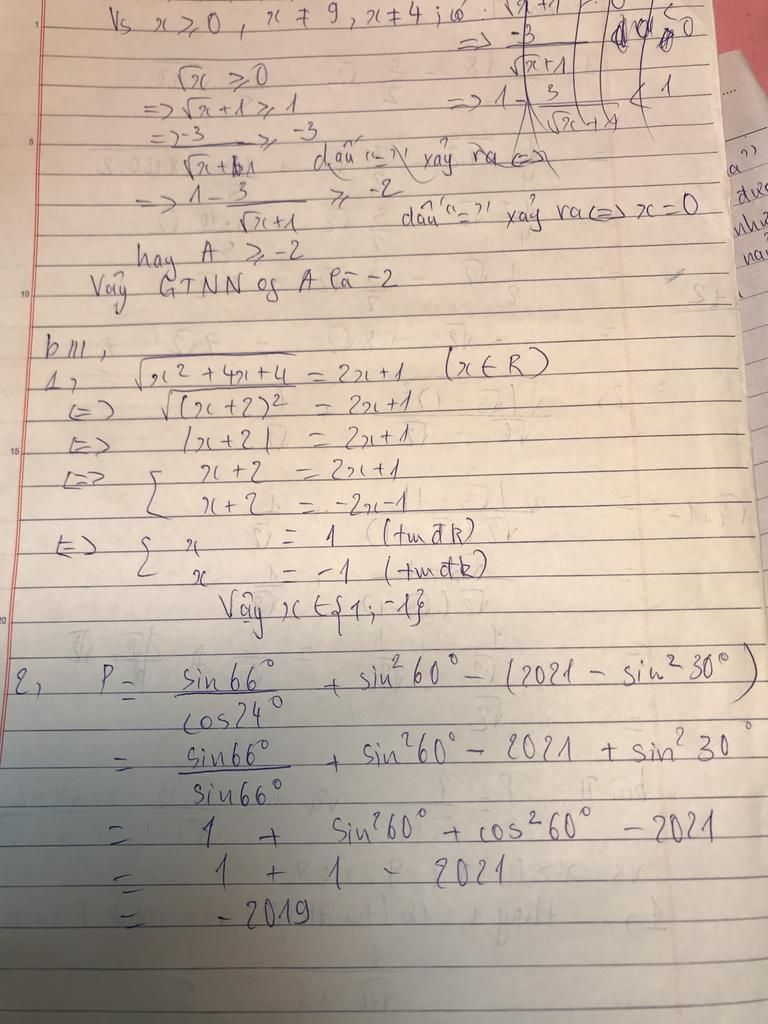 Vs x ≥ 0, x ≠ 9, x ≠ 4; có: √x+1
=> -3/√x+1 0
√x ≥ 0
=> √x+1 ≥ 1
=> 1 - 3/√x+1 < 1
=> -3/√x+1 ≥ -3 dấu "=" xảy ra <=>
=> 1 - 3/√x+1 ≥ -2 dấu "=" xảy ra <=> x = 0
hay A ≥ -2
Vậy GTNN of A là -2
b III,
1, √x² + 4x + 4 = 2x+1 (x ∈ R)
<=> √(x+2)² = 2x+1
<=> |x+2| = 2x+1
<=> { x+2 = 2x+1
x+2 = -2x-1
<=> { x = 1 (tmđk)
x = -1 (tmđk)
Vậy x ∈ {1; -1}
2, P = sin66°/cos24° + sin²60° - (2021 - sin²30°)
= sin66°/sin66° + sin²60° - 2021 + sin²30°
= 1 + sin²60° + cos²60° - 2021
= 1 + 1 - 2021
= -2019